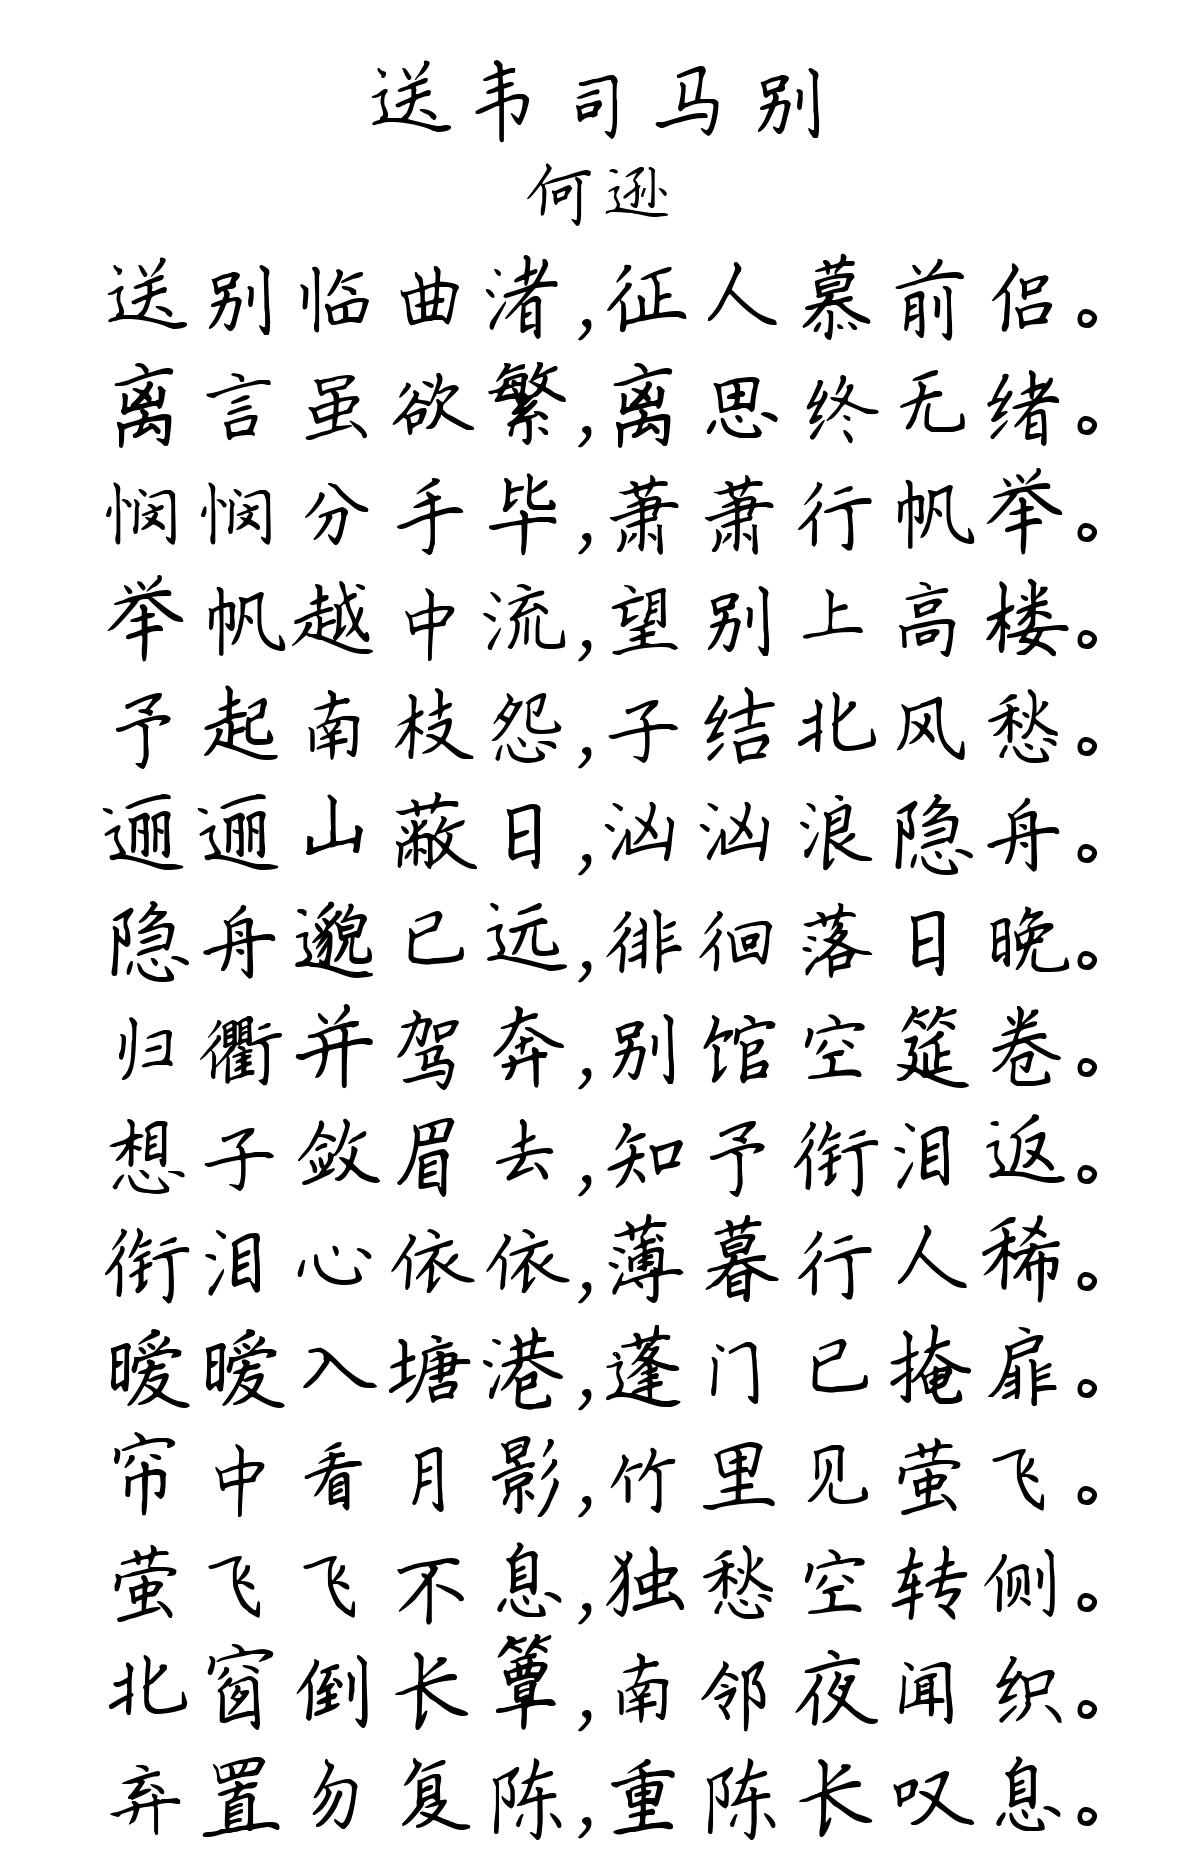 送韦司马别
何逊
送别临曲渚,征人慕前侣。
离言虽欲繁,离思终无绪。
悯悯分手毕,萧萧行帆举。
举帆越中流,望别上高楼。
予起南枝怨,子结北风愁。
逦逦山蔽日,汹汹浪隐舟。
隐舟邈已远,徘徊落日晚。
归衢并驾奔,别馆空筵卷。
想子敛眉去,知予衔泪返。
衔泪心依依,薄暮行人稀。
暧暧入塘港,蓬门已掩扉。
帘中看月影,竹里见萤飞。
萤飞飞不息,独愁空转侧。
北窗倒长簟,南邻夜闻织。
弃置勿复陈,重陈长叹息。